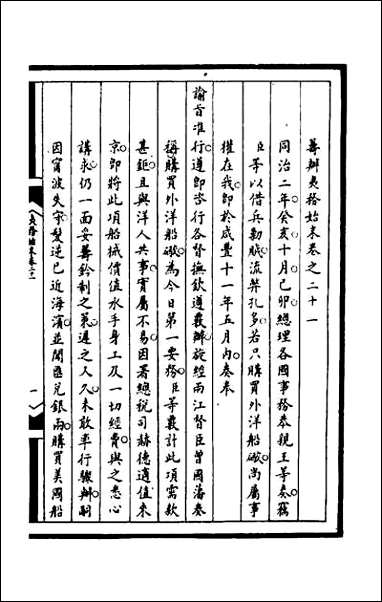 籌辦夷務始末卷之二十一
同治二年癸亥十月己卯總理各國事務恭親王等奏竊
臣等以借兵勦賊流弊孔多若只購買外洋船礮尚屬事
權在我即於咸豐十一年五月內奏奉
諭旨准行遵即咨行各督撫欽遵覈辦旋經兩江督臣曾國藩奏
稱購買外洋船礮為今日第一要務臣等覈計此項需款
甚鉅且與洋人共事實屬不易因署總稅司赫德適值來
京即將此項船械價值水手身工及一切經費與之悉心
講求仍一面妥籌鈐制之策遲之又久未敢率行驟辦嗣
因甯波失守髮逆已近海濱並聞匯兌銀兩購買美國船